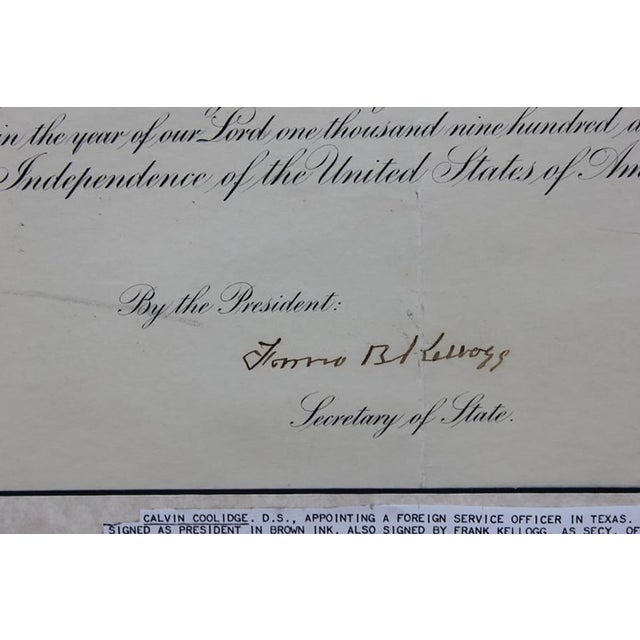 in the year of our Lord one thousand nine hundred
Independence of the United States of Am
By the President:
Frank B Kellogg
Secretary of State.
CALVIN COOLIDGE. D.S., APPOINTING A FOREIGN SERVICE OFFICER IN TEXAS.
SIGNED AS PRESIDENT IN BROWN INK. ALSO SIGNED BY FRANK KELLOGG, AS SECY. OF